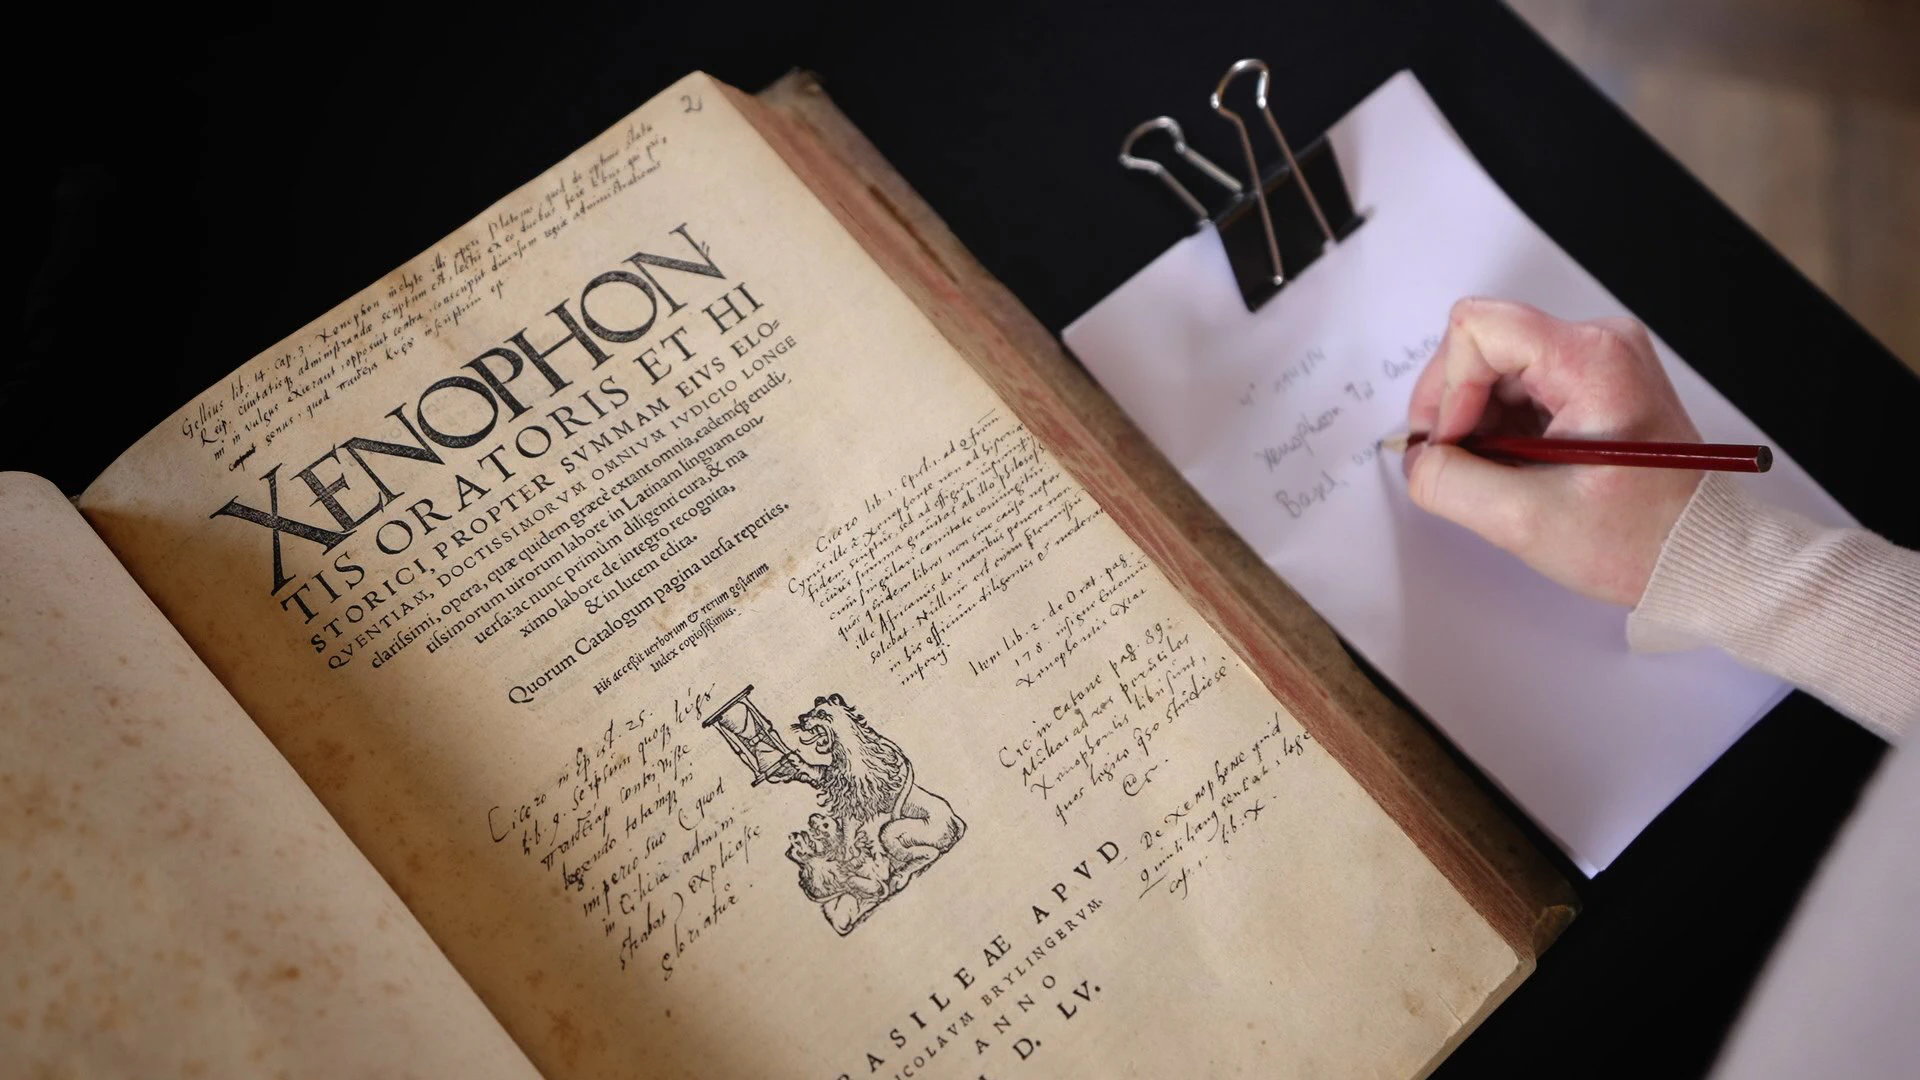 2
Gellius lib. 14. cap. 3. Xenophon inclyto illi operi Platonis, quod de optimo statu
Reip. civitatisq administrandæ scriptum est, lectis ex eo duobus fere libris, qui pri
mi in vulgus exierant, opposuit contra, conscripsit diversum regiæ administrationis
genus, quod παιδείας κύρου inscriptum
XENOPHON
TIS ORATORIS ET HI
STORICI, PROPTER SVMMAM EIVS ELO=
QVENTIAM, DOCTISSIMORVM OMNIVM IVDICIO LONGE
clarissimi, opera, quæ quidem græcè extant omnia, eademq́; erudi,
tissimorum uirorum labore in Latinam linguam con,
uersa: ac nunc primum diligenti cura, & ma
ximo labore de integro recognita,
& in lucem edita.
Quorum Catalogum pagina uersa reperies.
His accessit uerborum & rerum gestarum
Index copiosissimus.
Cicero lib. 1. Epist. ad Q. from
Cyrus ille à Xenophonte non ad historiæ
fidem scriptus, sed ad effigiem iusti
cuius summa gravitas ab illo philosopho
cum singulari comitate coniungitur
quos quidem libros non sine causa noster
ille Africanus de manibus ponere non
solebat. Nullum est enim prætermissum
in his officium diligentis & moderati
imperij
Item lib. 2. de Orat. pag.
178.
Xenophontis
Cic. in Catone pag. 89.
Multas ad res perutiles
Xenophontis libri sunt,
quos legite qso studiose
&c.
De Xenophonte quid
Quintilianus sentiat, lege
lib. X.
cap. 1.
Cicero in Epist. 25.
lib. 9.
legendo totamq in
imperio suo (quod
in Cilicia admini
strabat) explicasse
gloriatur
BASILEAE APVD
NICOLAVM BRYLINGERVM.
ANNO
M. D. LV.
Xenophon
Basel,